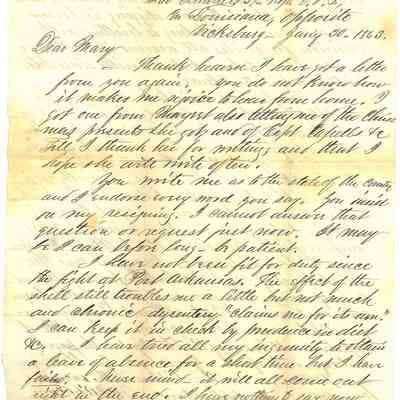 In Louisiana, opposite
Vicksburg – Jany 30. 1863.
Dear Mary
Thank heaven I have got a letter
from you again, you do not know how
it makes me rejoice to hear from home. I
got one from also telling me of the Christ
mas presents she got and of Capt &c
Tell I thank her for writing and that I
hope she will write often.
You write me as to the state of the country
and I endorse every word you say. You insist
on my resigning. I cannot answer that
question or request just now. It may
be I can before long – be patient.
I have not been fit for duty since
the fight at Post Arkansas. The effect of the
shell still troubles me a little but not much
and chronic dysentery "claims me for its own."
I can keep it in check by prudence in diet
&c. I have tried all my ingenuity to obtain
a leave of absence for a short time but I have
failed. Never mind it will all come out
right in the end. I have nothing to say now